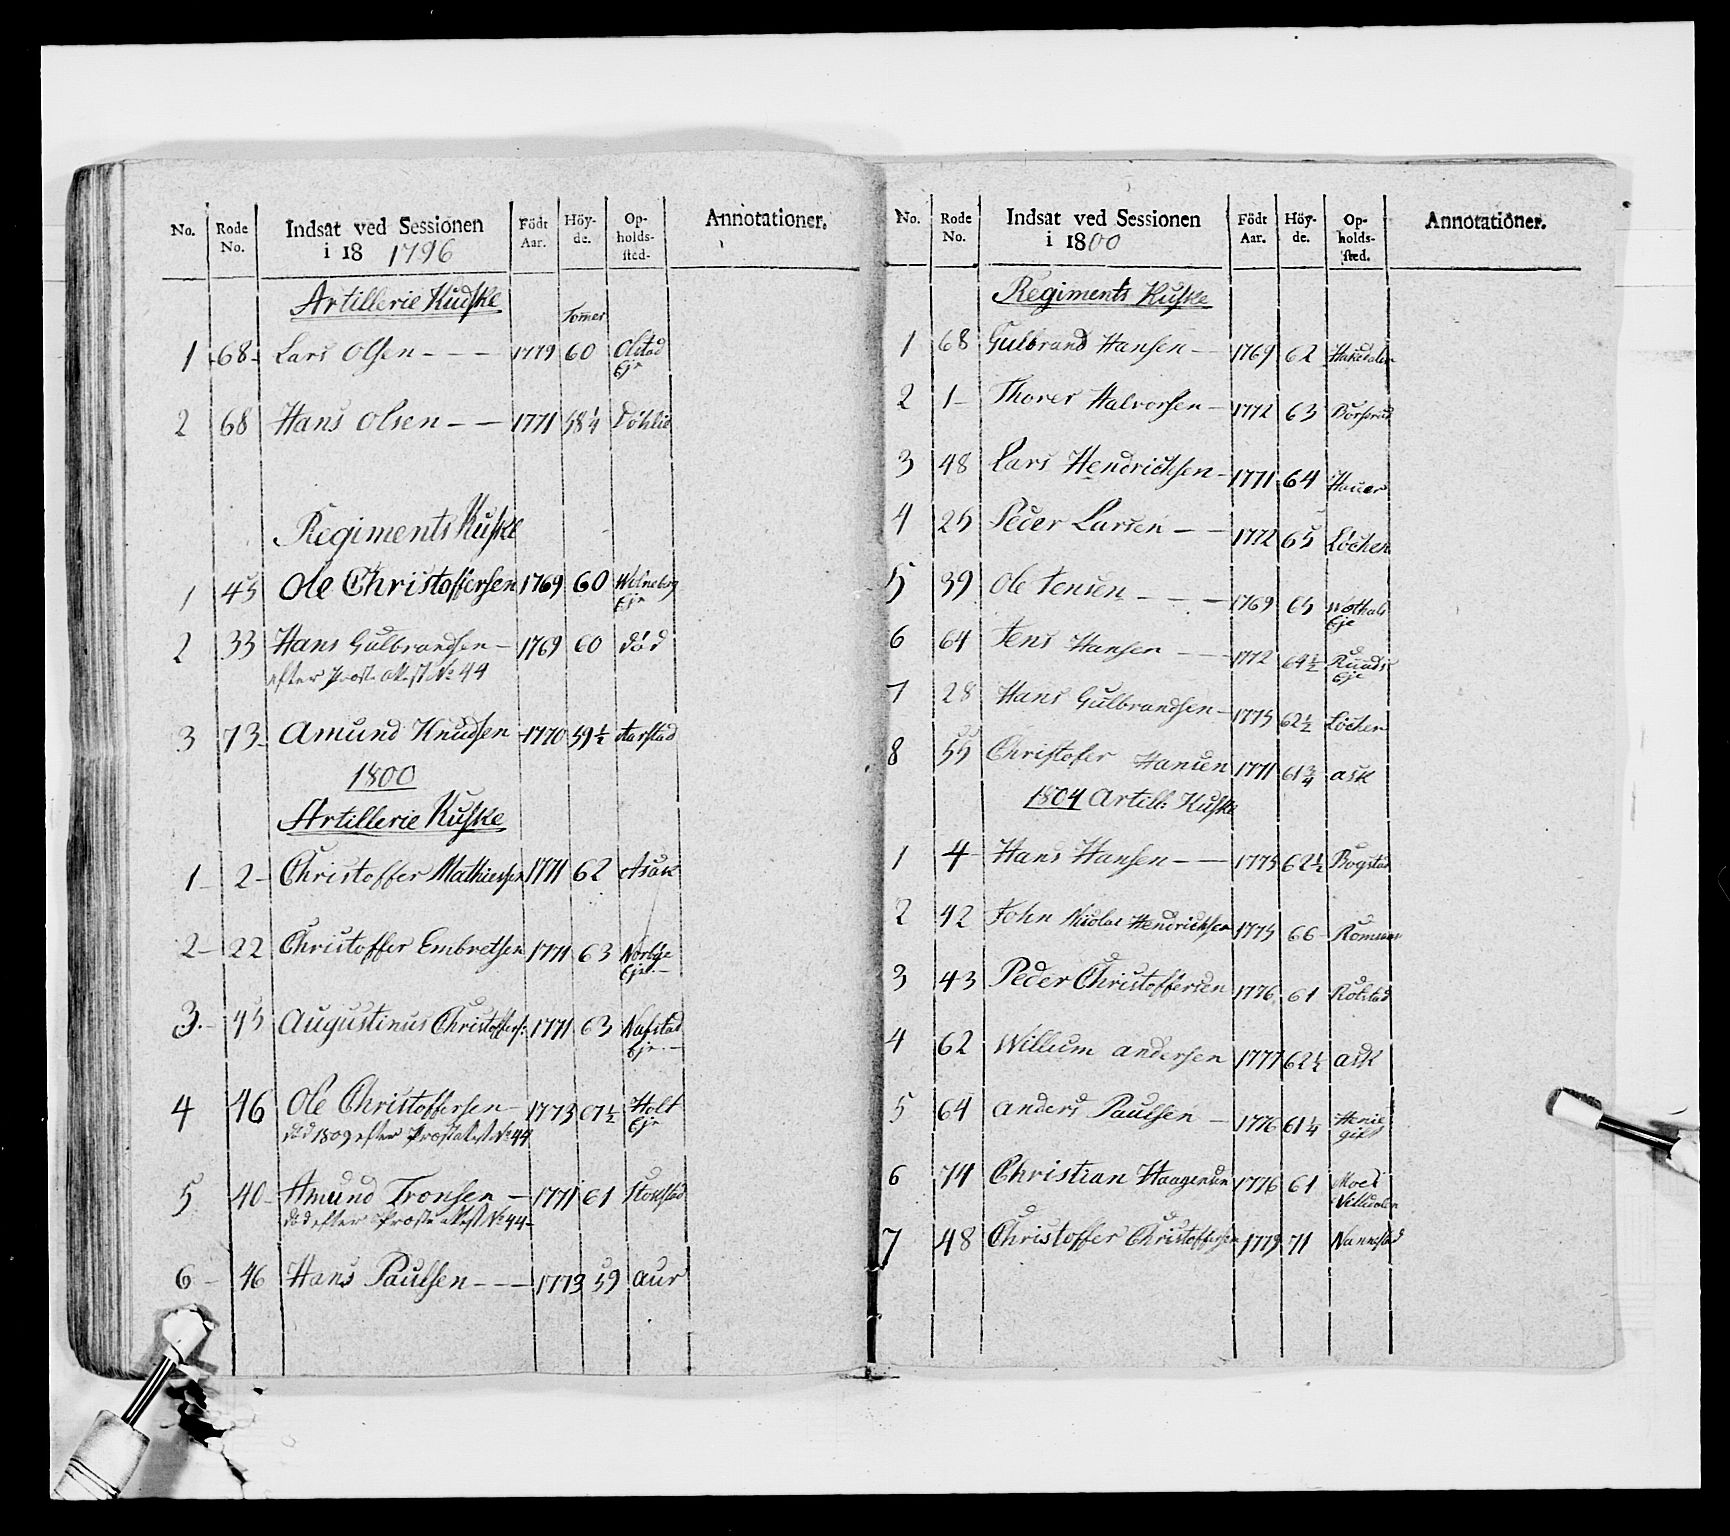 No. Rode No. Indsat ved Sessionen i 18 1796 Födt Aar. Höy-de. Op-holds-sted. Annotationer.
Artillerie Kudske
Tomer
1 68 Lars Olsen - - - 1779 60 Olstad
Eje
2 68 Hans Olsen - - 1771 58 1/4 Döhlie
Regiments Kuske
1 45 Ole Christoffersen 1769 60
Eje
2 33 Hans Gulbrandsen - 1769 60 död
efter Proste Attest No 44
3 73 Amund Knudsen - 1770 59 1/2 Aarstad
1800
Artillerie Kuske
1 2 Christoffer Mathiessen 1771 62 Asack
2 22 Christoffer Embretsen 1771 63 Norbye
Eje.-
3. 45 Augustinus Christoffers: 1771 63 Nafstad
Eje.-
4 46 Ole Christoffersen - 1773 61 1/2 Holt
Eje
död 1809 efter Proste Attest No 44
5 40 Amund Tronsen - 1771 61 Stokstad
död efter Proste Attest No 44
6 46 Hans Paulsen - - - 1773 59 Aur
No. Rode No. Indsat ved Sessionen i 1800 Födt Aar. Höy-de. Op-holds-sted. Annotationer.
Regiments Kuske
1 68 Gulbrand Hansen - 1769 62 Hakedalen
2 1 Thorer Halvorsen - 1772 63
3 48 Lars Hendrichsen - 1771 64 Hauer
4 25 Peder Larsen - - 1772 65 Löchen
5 39 Ole Jensen - - - 1769 65
Eje
6 64 Jens Hansen - - 1772 64 1/2 Ruuds
Eje
7 28 Hans Gulbrandsen - 1775 62 1/2 Löchen
8 55 Christofer Hansen 1771 61 3/4 Ask
1804 Artill: Kuske
1 4 Hans Hansen - - 1775 62 1/2 Bogstad
2 42 John Nicolai Hendrichsen 1775 66
3 43 Peder Christoffersen 1776 61 Rolstad
4 62 Willum Andersen 1777 62 1/2 Ask
5 64 Anders Paulsen - 1776 61 1/4
6 74 Christian Haagensen 1776 61 Moe i
7 48 Christoffer Christoffersen 1779 71 Nannestad